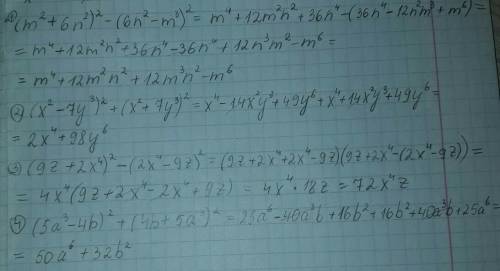 ① (m²+6n²)²-(6n²-m³)² = m⁴+12m²n²+36n⁴-(36n⁴-12n²m³+m⁶)=
= m⁴+12m²n²+36n⁴-36n⁴+12n³m²-m⁶=
= m⁴+12m²n²+12m³n²-m⁶
② (x²-7y³)²+(x²+7y³)²=x⁴-14x²y³+49y⁶+x⁴+14x²y³+49y⁶=
= 2x⁴+98y⁶
③ (9z+2x⁴)²-(2x⁴-9z)²=(9z+2x⁴+2x⁴-9z)(9z+2x⁴-(2x⁴-9z))=
= 4x⁴(9z+2x⁴-2x⁴+9z) = 4x⁴·18z = 72x⁴z
④ (5a³-4b)²+(4b+5a³)²=25a⁶-40a³b+16b²+16b²+40a³b+25a⁶=
= 50a⁶+32b²